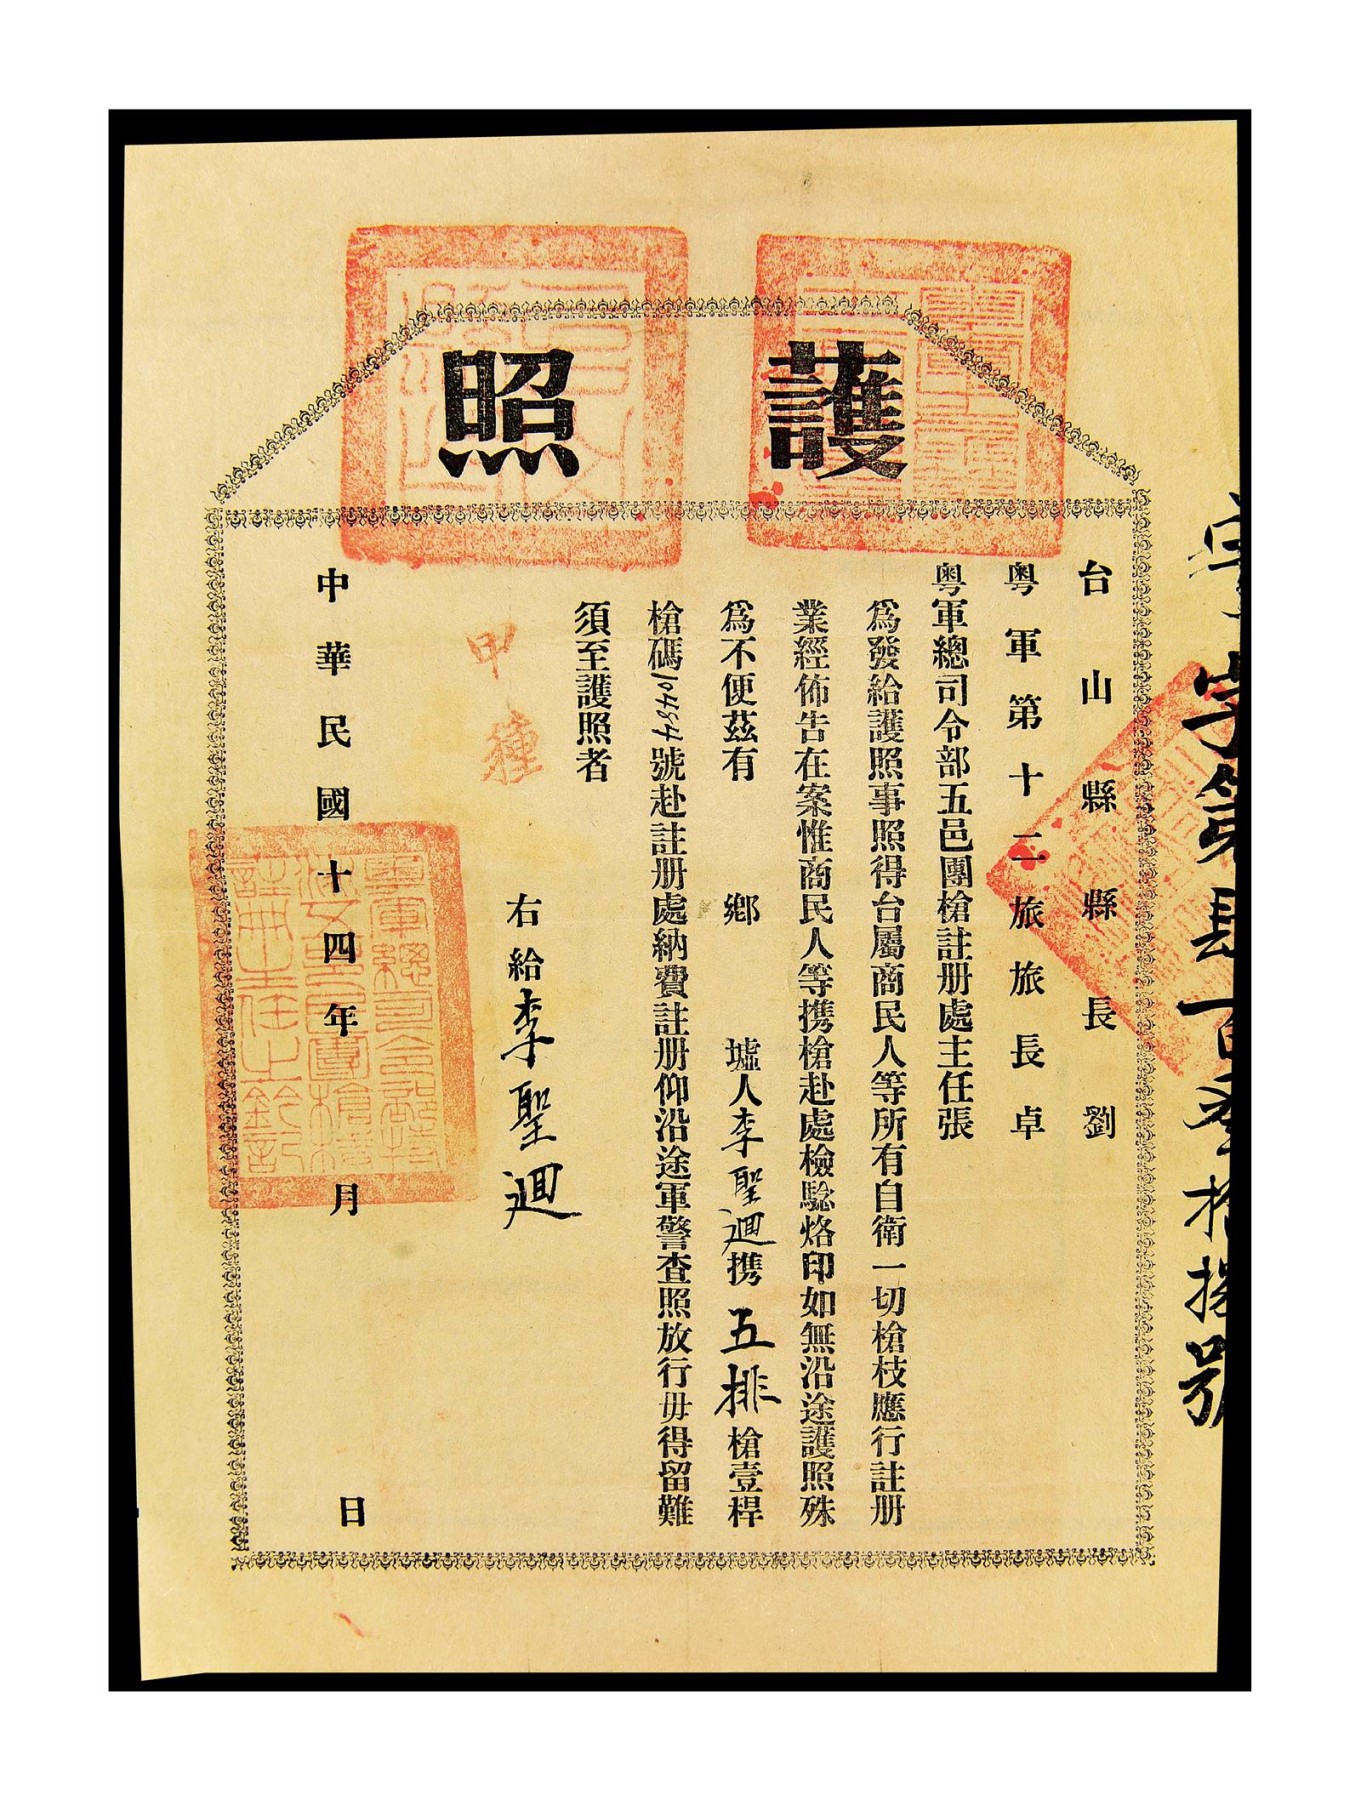 護照
字第肆百叁拾捌號
台山縣縣長劉
粵軍第十二旅旅長卓
粵軍總司令部五邑團槍註册處主任張
爲發給護照事照得台屬商民人等所有自衛一切槍枝應行註册
業經佈告在案惟商民人等携槍赴處檢騐烙印如無沿途護照殊
爲不便茲有 鄉 墟人李聖迴携五排槍壹桿
槍碼104454號赴註册處納費註册仰沿途軍警查照放行毋得留難
須至護照者
右給李聖迴
甲種
中華民國十四年 月 日